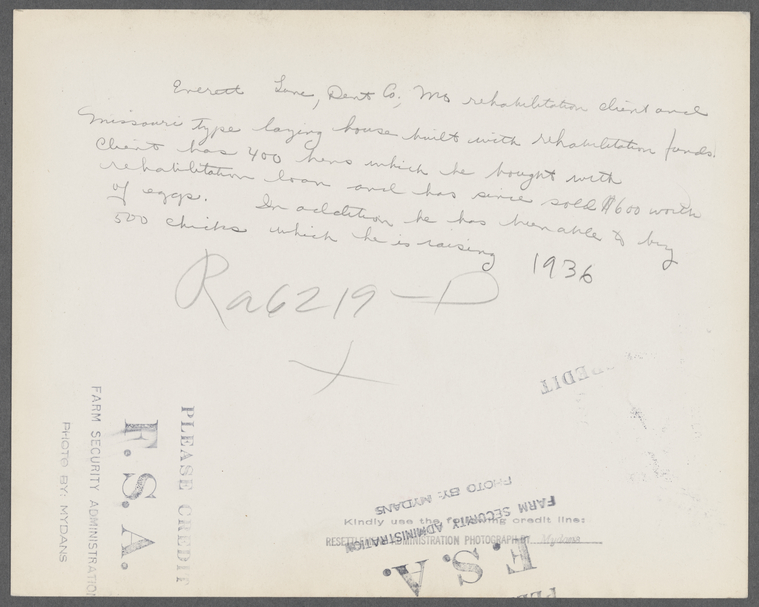 Everett Lane, Dent Co., Mo rehabilitation client and
Missouri type laying house built with rehabilitation funds.
Client has 400 hens which he bought with
rehabilitation loan and has since sold $600 worth
of eggs. In addition he has been able to buy
500 chicks which he is raising 1936
Ra6219-D
PLEASE CREDIT
F.S.A.
FARM SECURITY ADMINISTRATION
PHOTO BY: MYDANS
CREDIT
PHOTO BY: MYDANS
FARM SECURITY ADMINISTRATION
Kindly use the following credit line:
RESETTLEMENT ADMINISTRATION PHOTOGRAPH BY Mydans
F.S.A.